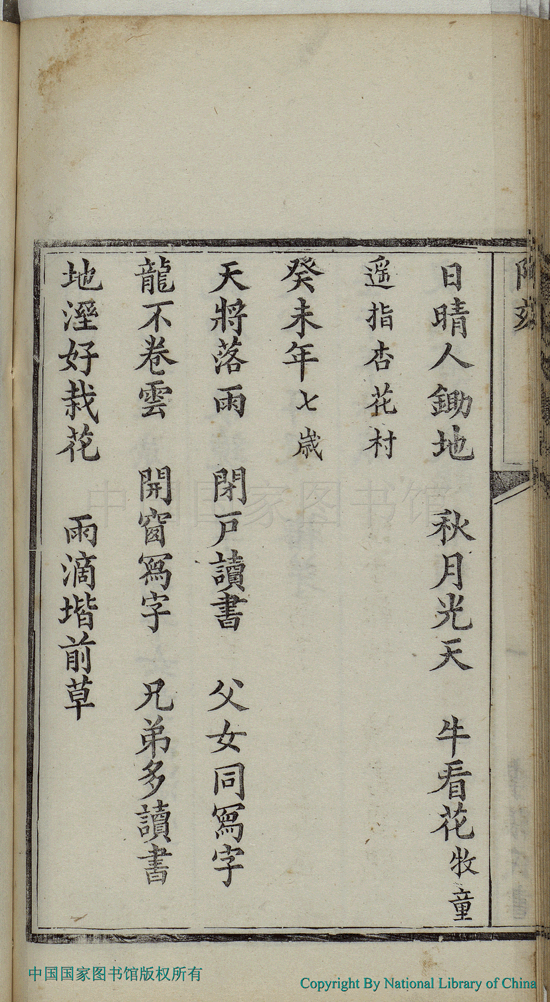 日晴人鋤地　秋月光天　牛看花牧童
遥指杏花村
癸未年七歲
天將落雨　閉戸讀書　父女同寫字
龍不卷雲　開窗寫字　兄弟多讀書
地溼好栽花　雨滴堦前草
中国国家图书馆
中国国家图书馆版权所有
Copyright By National Library of China